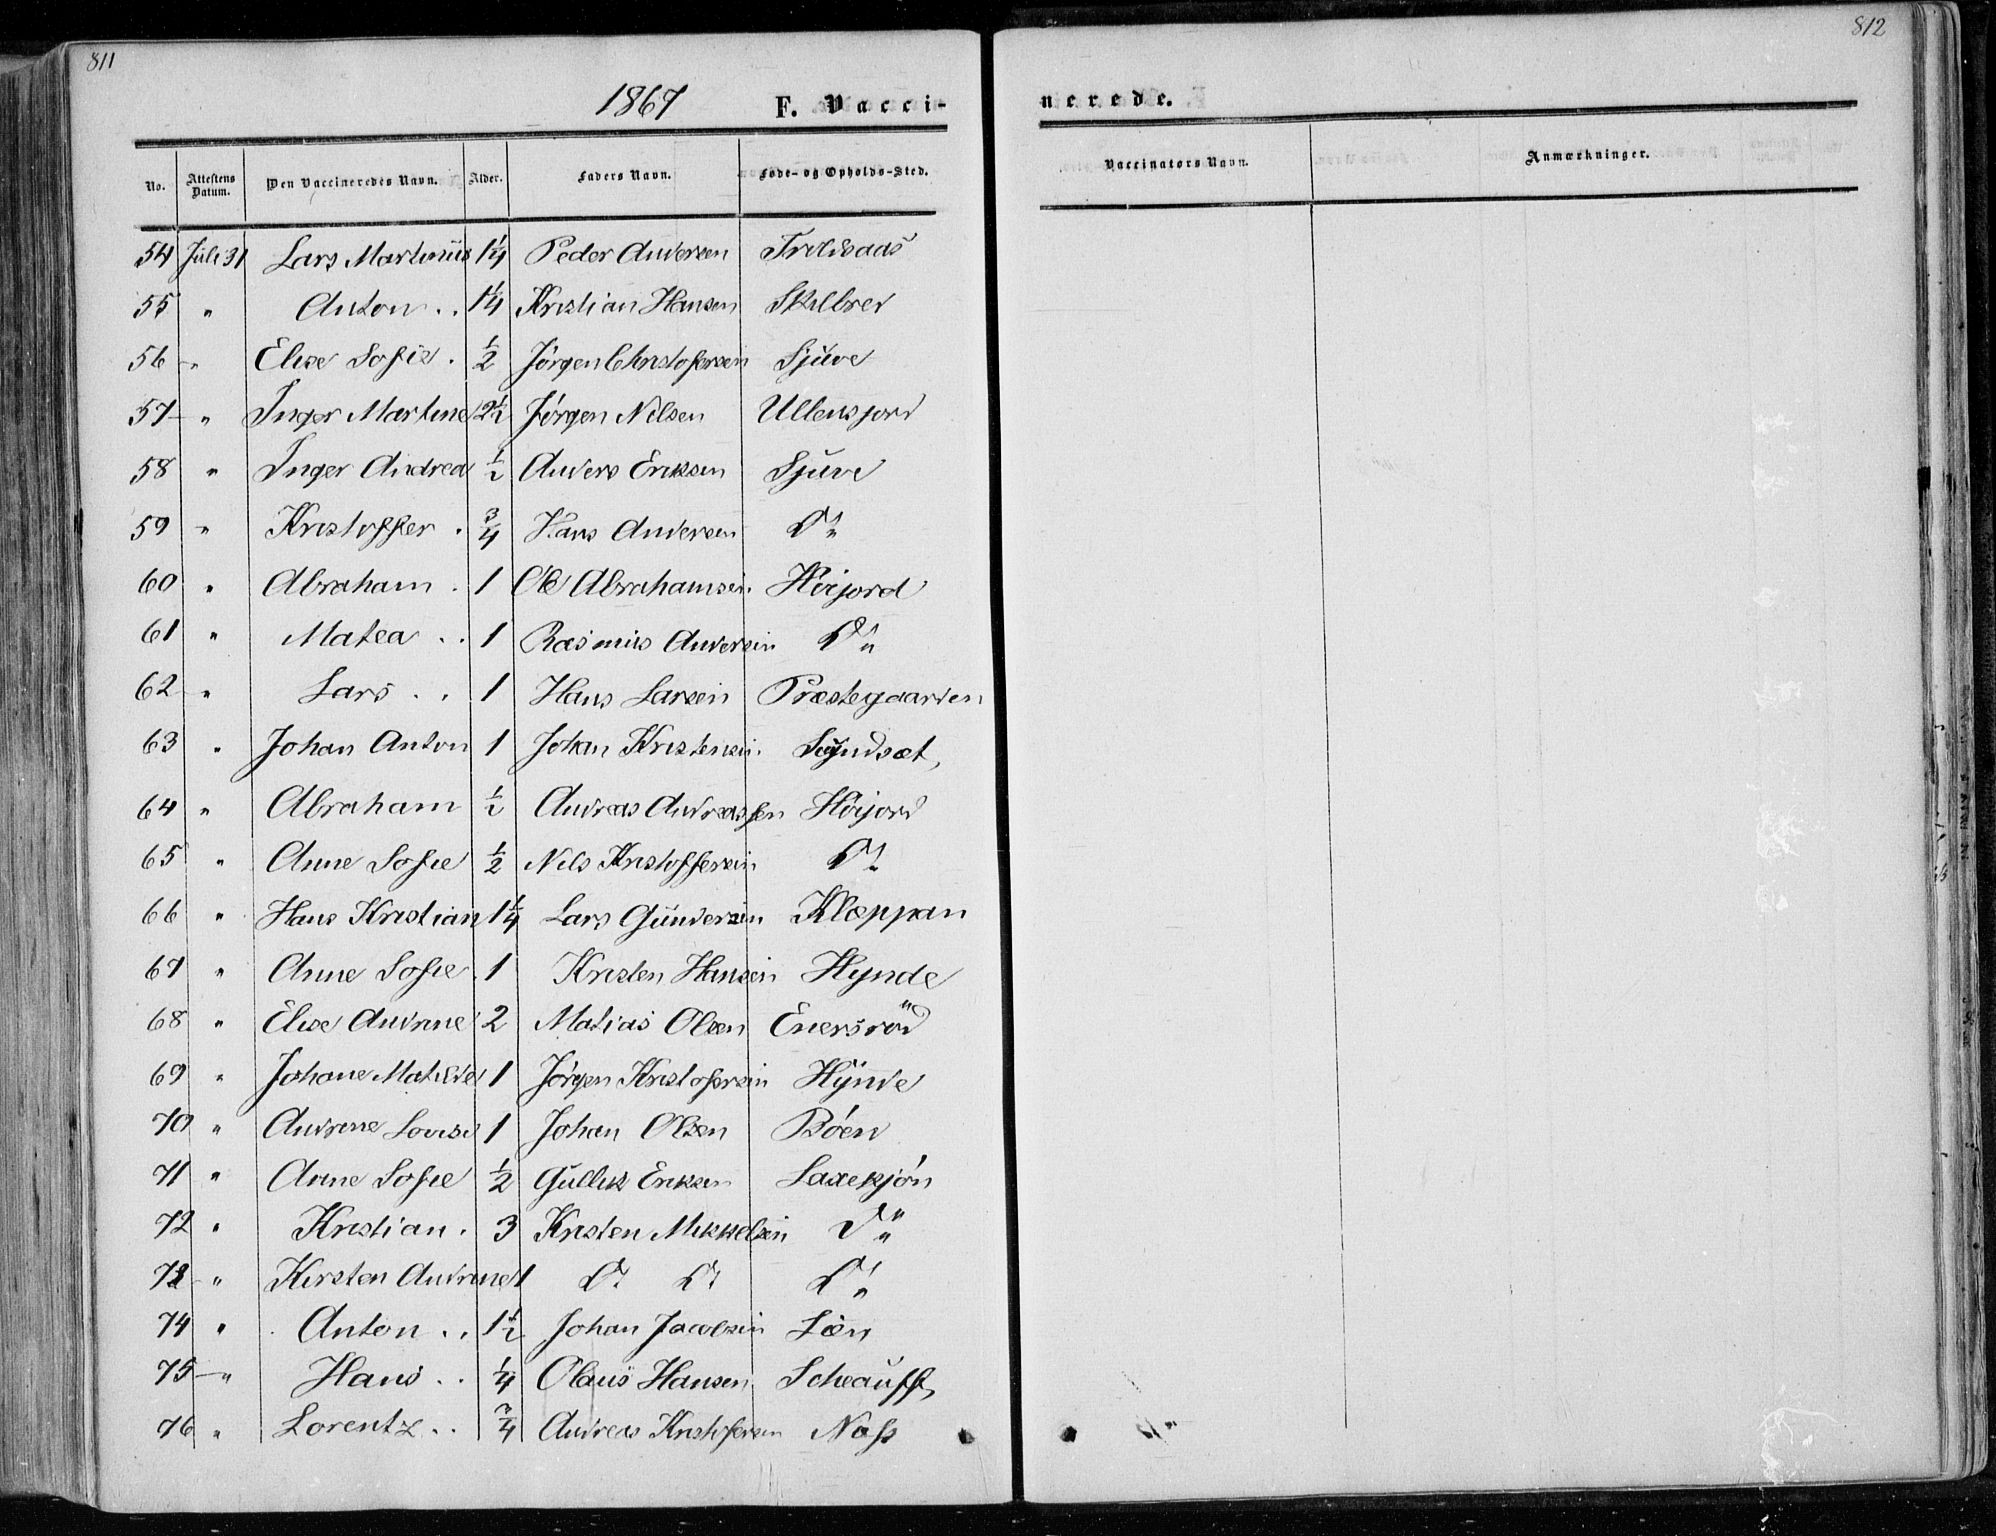 811
812
1867 F. Vacci-
nerede.
No. Attestens Datum. Den Vaccineredes Navn. Alder. Faders Navn. Føde- og Opholds-Sted.
Vaccinators Navn. Anmærkninger.
54 Juli 31 Lars Martinus 1 1/4 Peder Andersen
55 " Anton .. 1 1/4 Kristian Hansen Skilbred
56 - " Elise Sofie . 1/2 Jörgen Christofersen Sjuve
57 - " Inger Martine 2 1/2 Jörgen Nilsen Ullensjord
58 " Inger Andrea 1/2 Anders Eriksen Sjuve
59 " Kristoffer . 3/4 Hans Andersen Do "
60 " Abraham . 1 Ole Abrahamsen Höijord
61 " Matea .. 1 Rasmus Andersen Do "
62 " Lars .. 1 Hans Larsen Præstegaarden
63 " Johan Anton 1 Johan Kristensen
64 " Abraham 1/2 Andreas Andreassen Höijord
65 " Anne Sofie 1/2 Nils Kristoffersen Do "
66 " Hans Kristian 1 1/4 Lars Gundersen Klæppan
67 " Anne Sofie 1 Kristen Hansen Hynde
68 " Elise Andrine 2 Matias Olsen Enersröd
69 " Johane Matilde 1 Jörgen Kristofersen Hynde
70 " Andrine Lovise 1 Johan Olsen Böen
71 " Anne Sofie 1/2 Gullik Eriksen Saxekjön
72 " Kristian . 3 Kristen Mikkelsen Do "
73 - " Kirsten Andrine 1 Do Do Do "
74 " Anton .. 1 1/2 Johan Jacobsen
75 - " Hans .. 1/4 Olaus Hansen
76 " Lorentz .. 3/4 Andreas Kristofersen Næss